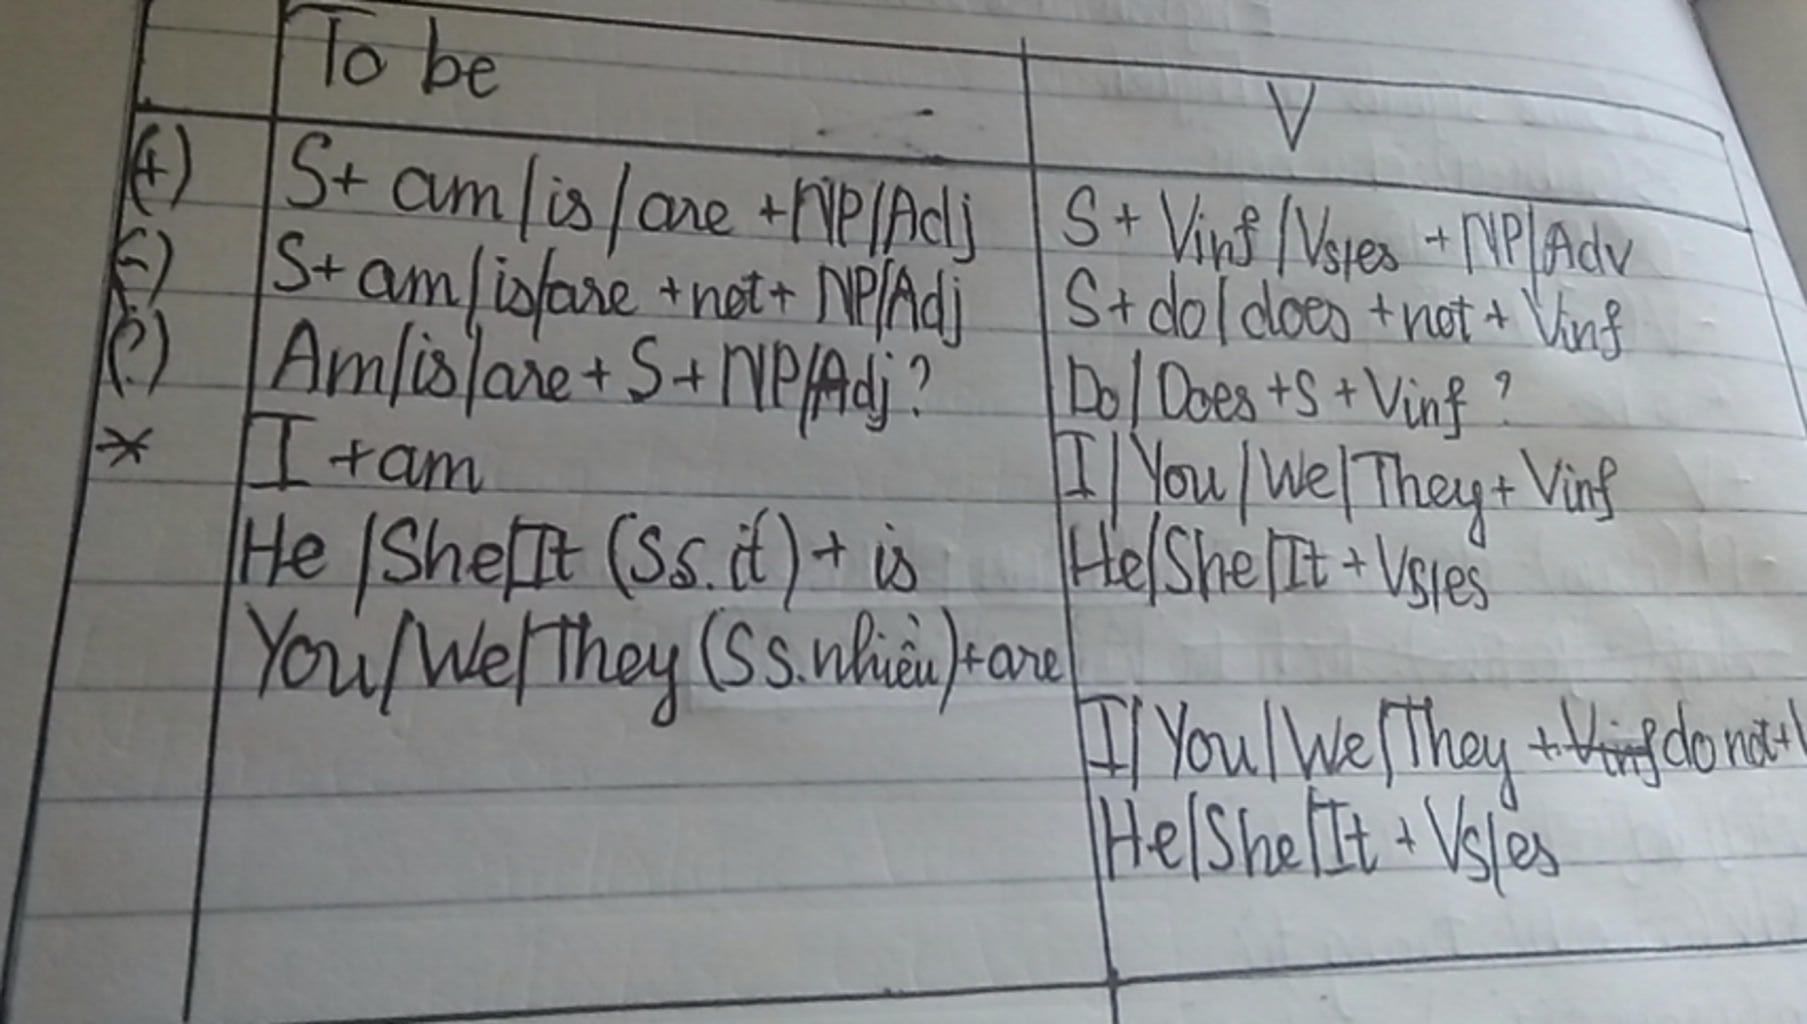 To be
V
(+) S+ am/is/are +NP/Adj
S + Vinf/Vs/es + NP/Adv
(-) S+ am/is/are +not+ NP/Adj
S+ do/does +not + Vinf
(?) Am/is/are + S + NP/Adj?
Do/Does +S + Vinf?
* I +am
I/You/We/They + Vinf
He/She/It (Ss.ít) + is
He/She/It + Vs/es
You/We/They (Ss.nhiều)+are
I/You/We/They + Vinf do not +
He/She/It + Vs/es